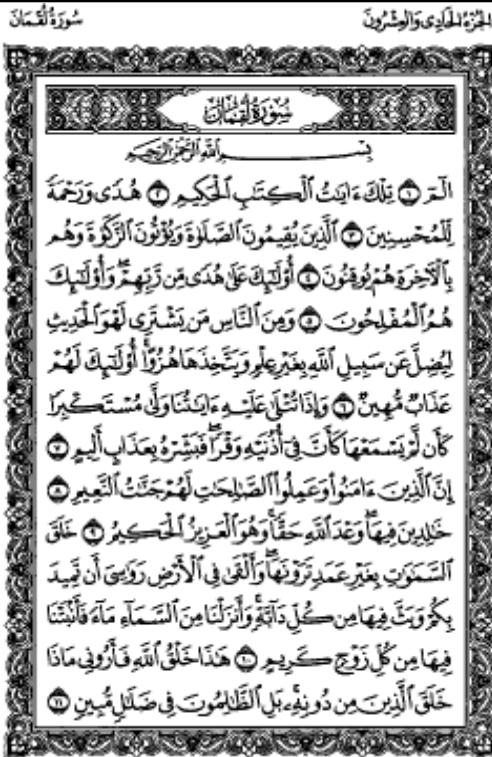 سُورَةُ لُقۡمَانَ
الجُزۡءُ الحَادِى وَالعِشۡرُونَ
سُورَةُ لُقۡمَانَ
بِسۡمِ ٱللَّهِ ٱلرَّحۡمَٰنِ ٱلرَّحِيمِ
الٓمٓ ١ تِلۡكَ ءَايَٰتُ ٱلۡكِتَٰبِ ٱلۡحَكِيمِ ٢ هُدٗى وَرَحۡمَةٗ
لِّلۡمُحۡسِنِينَ ٣ ٱلَّذِينَ يُقِيمُونَ ٱلصَّلَوٰةَ وَيُؤۡتُونَ ٱلزَّكَوٰةَ وَهُم
بِٱلۡأٓخِرَةِ هُمۡ يُوقِنُونَ ٤ أُوْلَٰٓئِكَ عَلَىٰ هُدٗى مِّن رَّبِّهِمۡۖ وَأُوْلَٰٓئِكَ
هُمُ ٱلۡمُفۡلِحُونَ ٥ وَمِنَ ٱلنَّاسِ مَن يَشۡتَرِي لَهۡوَ ٱلۡحَدِيثِ
لِيُضِلَّ عَن سَبِيلِ ٱللَّهِ بِغَيۡرِ عِلۡمٖ وَيَتَّخِذَهَا هُزُوًاۚ أُوْلَٰٓئِكَ لَهُمۡ
عَذَابٞ مُّهِينٞ ٦ وَإِذَا تُتۡلَىٰ عَلَيۡهِ ءَايَٰتُنَا وَلَّىٰ مُسۡتَكۡبِرٗا
كَأَن لَّمۡ يَسۡمَعۡهَا كَأَنَّ فِيٓ أُذُنَيۡهِ وَقۡرٗاۖ فَبَشِّرۡهُ بِعَذَابٍ أَلِيمٍ ٧
إِنَّ ٱلَّذِينَ ءَامَنُواْ وَعَمِلُواْ ٱلصَّٰلِحَٰتِ لَهُمۡ جَنَّٰتُ ٱلنَّعِيمِ ٨
خَٰلِدِينَ فِيهَاۖ وَعۡدَ ٱللَّهِ حَقّٗاۚ وَهُوَ ٱلۡعَزِيزُ ٱلۡحَكِيمُ ٩ خَلَقَ
ٱلسَّمَٰوَٰتِ بِغَيۡرِ عَمَدٖ تَرَوۡنَهَاۖ وَأَلۡقَىٰ فِي ٱلۡأَرۡضِ رَوَٰسِيَ أَن تَمِيدَ
بِكُمۡ وَبَثَّ فِيهَا مِن كُلِّ دَآبَّةٖۚ وَأَنزَلۡنَا مِنَ ٱلسَّمَآءِ مَآءٗ فَأَنۢبَتۡنَا
فِيهَا مِن كُلِّ زَوۡجٖ كَرِيمٍ ١٠ هَٰذَا خَلۡقُ ٱللَّهِ فَأَرُونِي مَاذَا
خَلَقَ ٱلَّذِينَ مِن دُونِهِۦۚ بَلِ ٱلظَّٰلِمُونَ فِي ضَلَٰلٖ مُّبِينٖ ١١